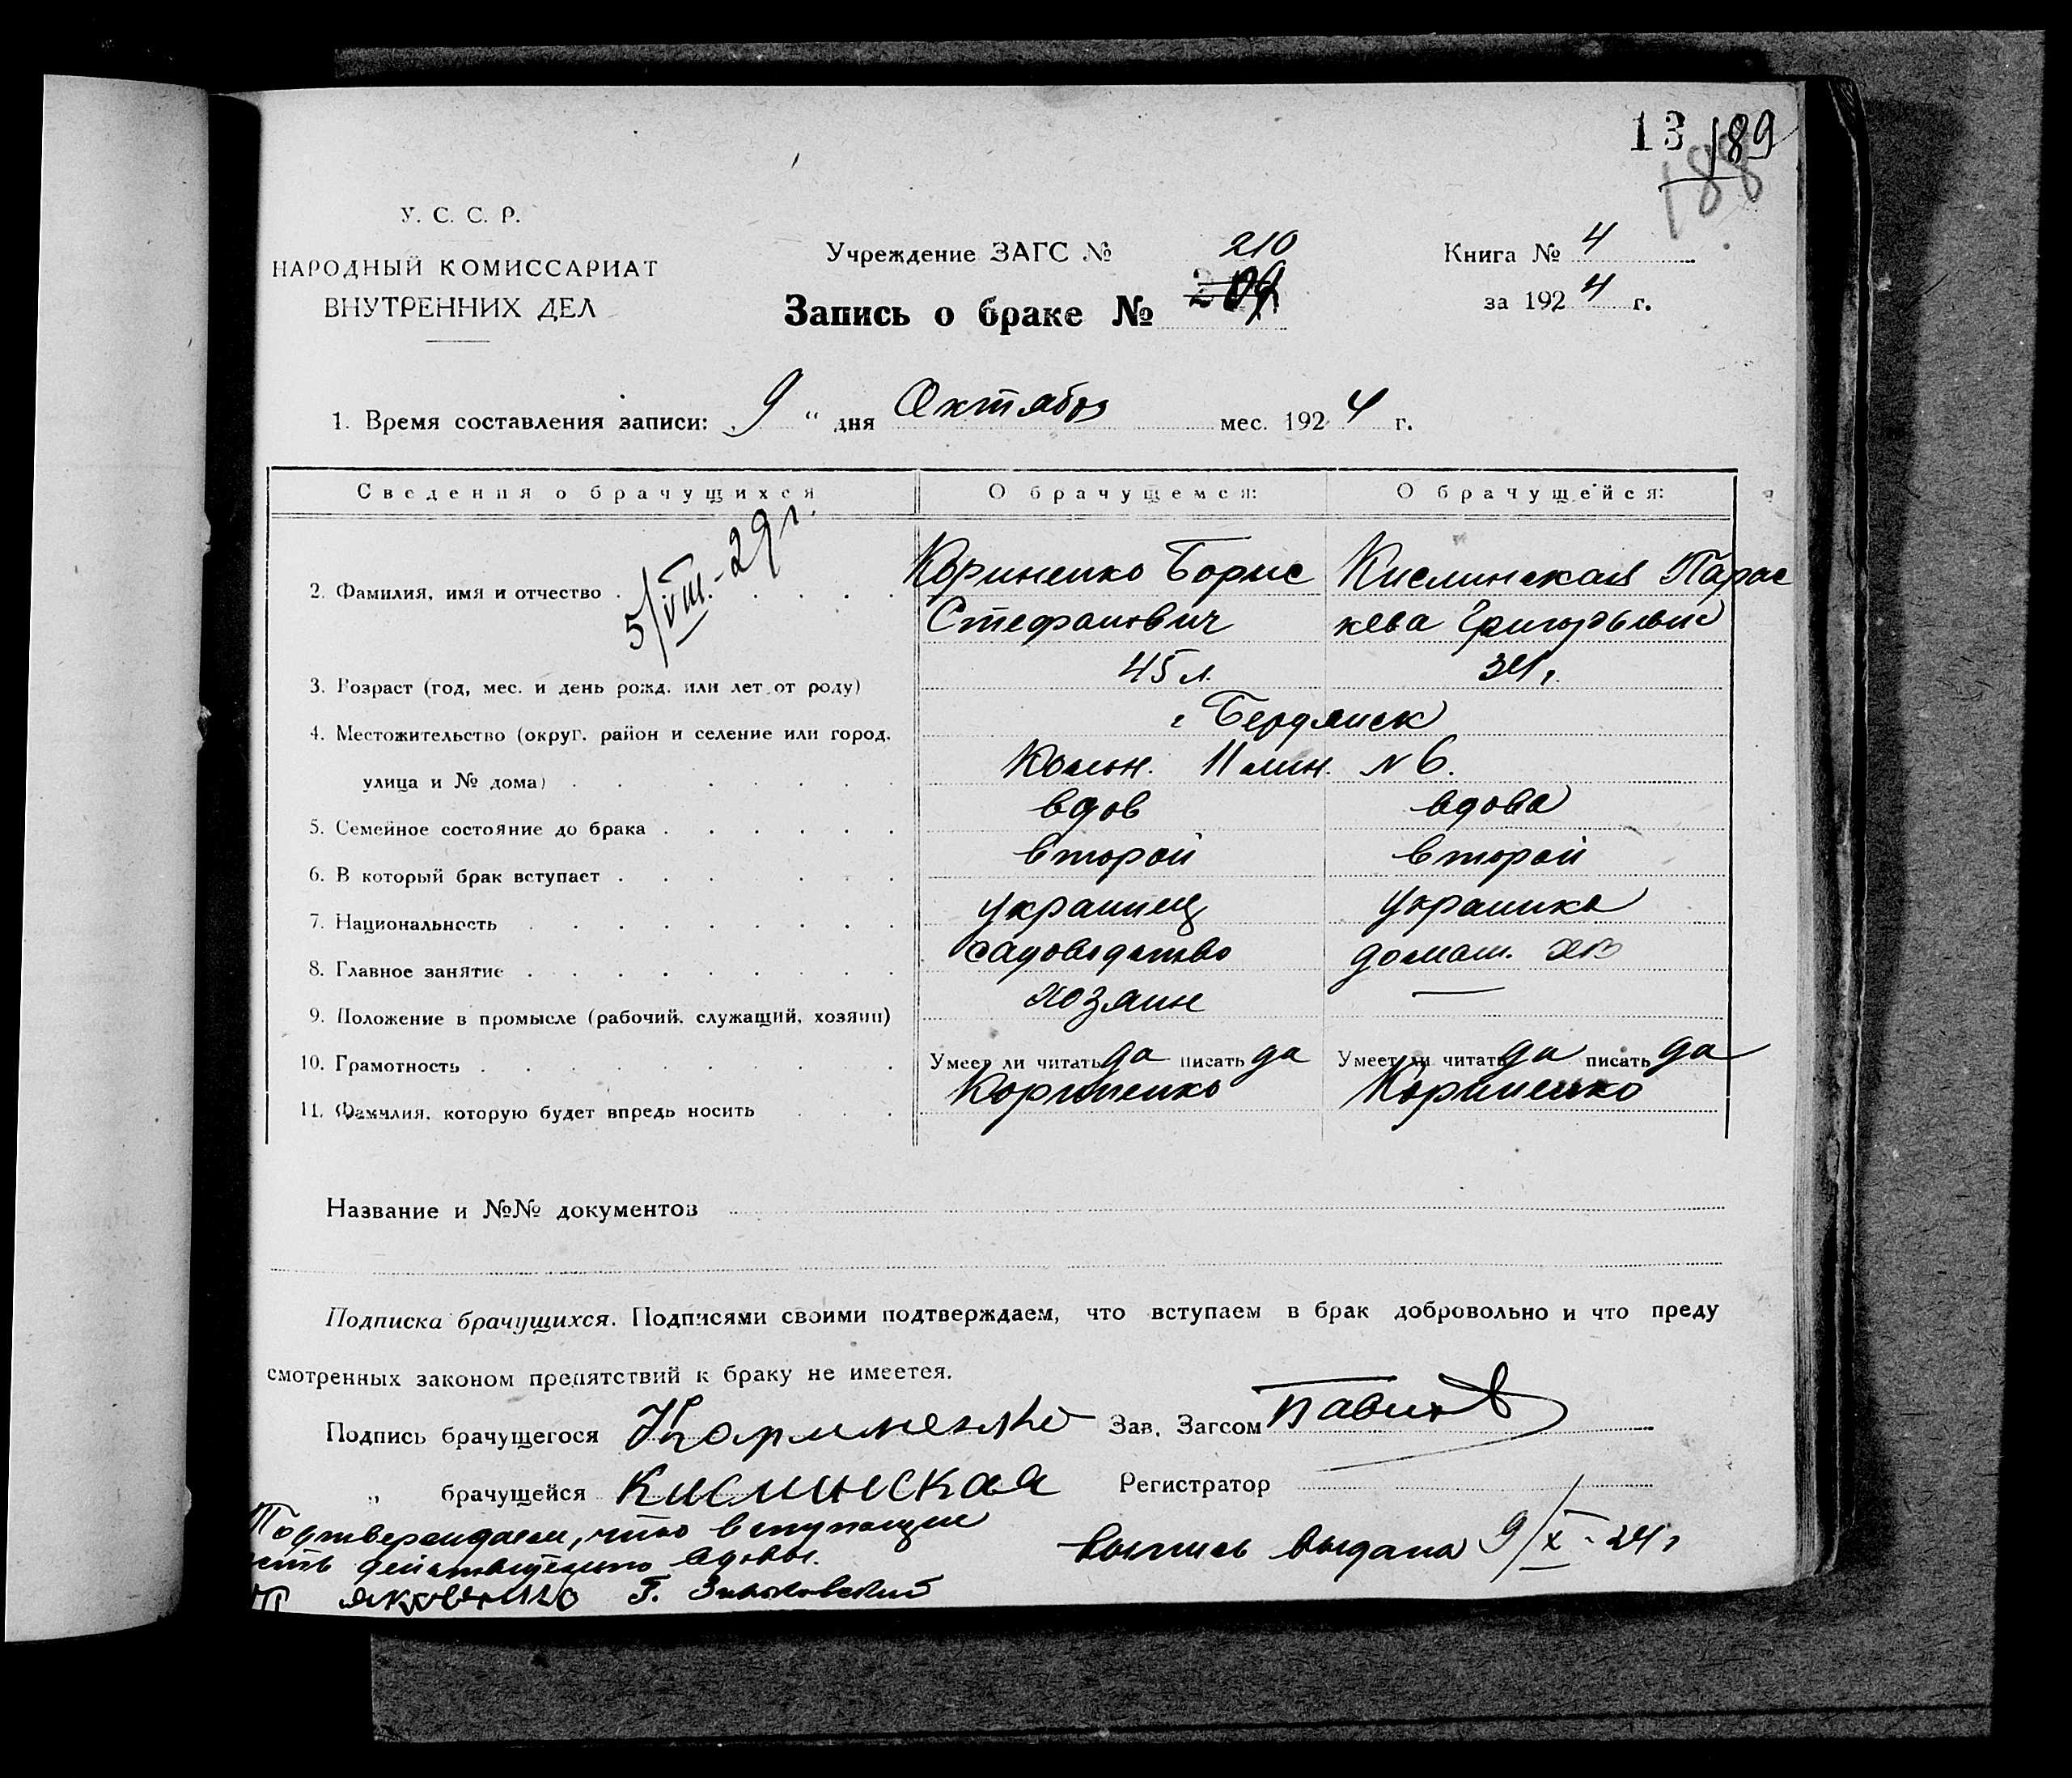 13 189
188
У. С. С. Р.
НАРОДНЫЙ КОМИССАРИАТ
ВНУТРЕННИХ ДЕЛ
Учреждение ЗАГС № 210
Запись о браке № 209
Книга № 4
за 1924 г.
1. Время составления записи: 9 " дня Октября мес. 1924 г.
Сведения о брачущихся О брачущемся: О брачущейся:
5/VIII-29 г.
2. Фамилия, имя и отчество Кориненко Борис Кислинская Парас
Стефанович кева Григорьевн
3. Возраст (год, мес. и день рожд. или лет от роду) 45 л. 34 г.
4. Местожительство (округ. район и селение или город, г Бердянск
улица и № дома) Колон. 11 лин. N 6.
5. Семейное состояние до брака вдов вдова
6. В который брак вступает второй второй
7. Национальность украинец украинка
8. Главное занятие садоводство домаш. хоз
9. Положение в промысле (рабочий, служащий, хозяин) хозяин —
10. Грамотность Умеет ли читать да писать да Умеет ли читать да писать да
11. Фамилия, которую будет впредь носить Кориненко Кориненко
Название и №№ документов
Подписка брачущихся. Подписями своими подтверждаем, что вступаем в брак добровольно и что преду
смотренных законом препятствий к браку не имеется.
Подпись брачущегося Кориненко Зав. Загсом
" брачущейся Кислинская Регистратор
Подтверждаем, что вступающие
действительно вдовы.
Яковенко Г.
Выпись выдана 9/X-24 г